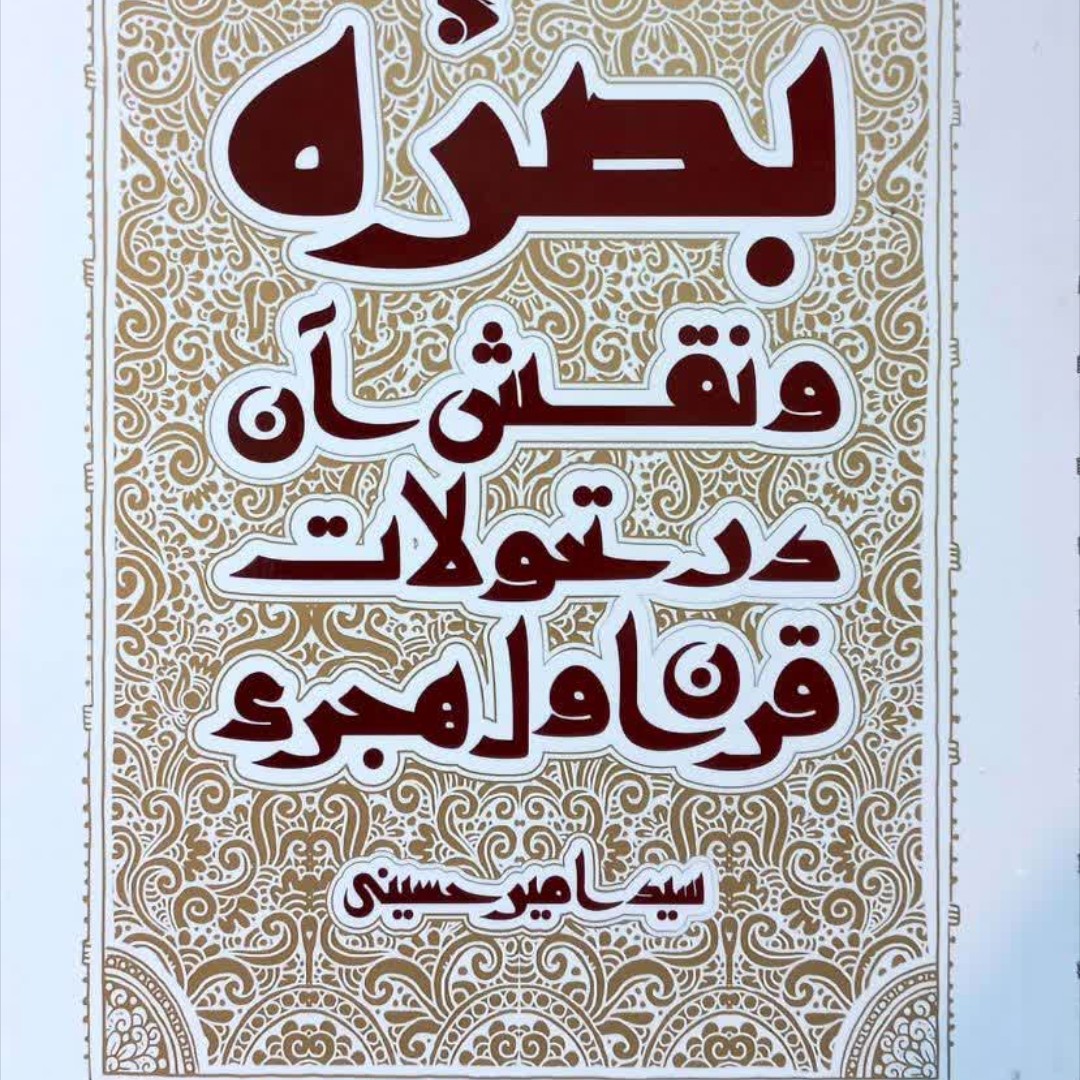 بصره
و نقش آن
در تحولات
قرن اول هجری
سید امیر حسینی